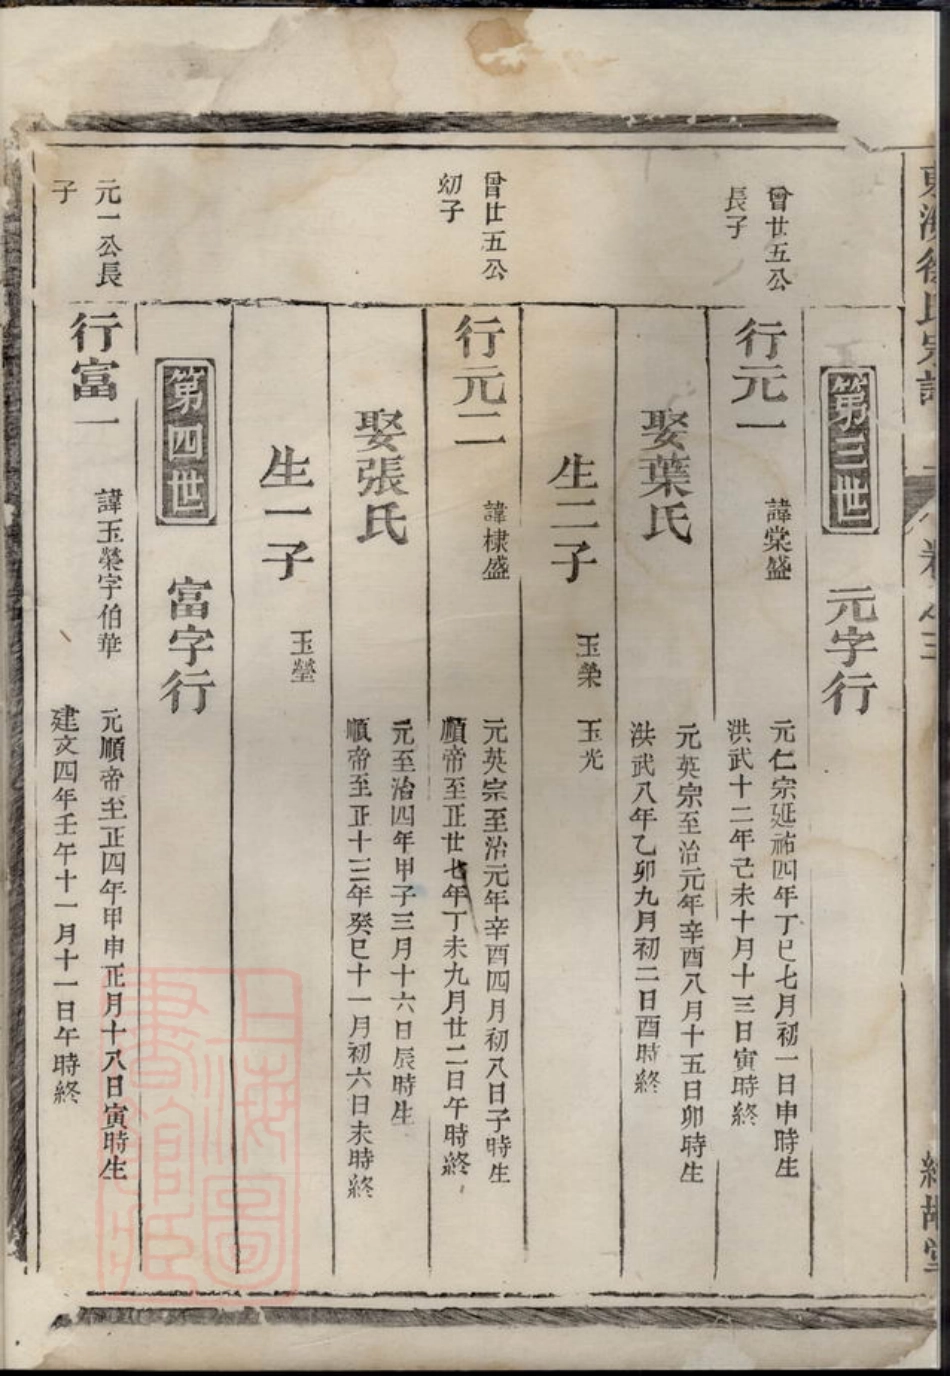 東海徐氏宗譜
卷之三
第三世
元字行
曾廿五公
長子
行元一
諱棠盛
元仁宗延祐四年丁巳七月初一日申時生
洪武十二年己未十月十三日寅時終
娶葉氏
元英宗至治元年辛酉八月十五日卯時生
洪武八年乙卯九月初二日酉時終
生二子
玉榮 玉光
曾廿五公
幼子
行元二
諱棣盛
元英宗至治元年辛酉四月初八日子時生
順帝至正廿七年丁未九月廿二日午時終
娶張氏
元至治四年甲子三月十六日辰時生
順帝至正十三年癸巳十一月初六日未時終
生一子
玉瑩
第四世
富字行
元一公長
子
行富一
諱玉榮字伯華
元順帝至正四年甲申正月十八日寅時生
建文四年壬午十一月十一日午時終
上海圖
書館藏